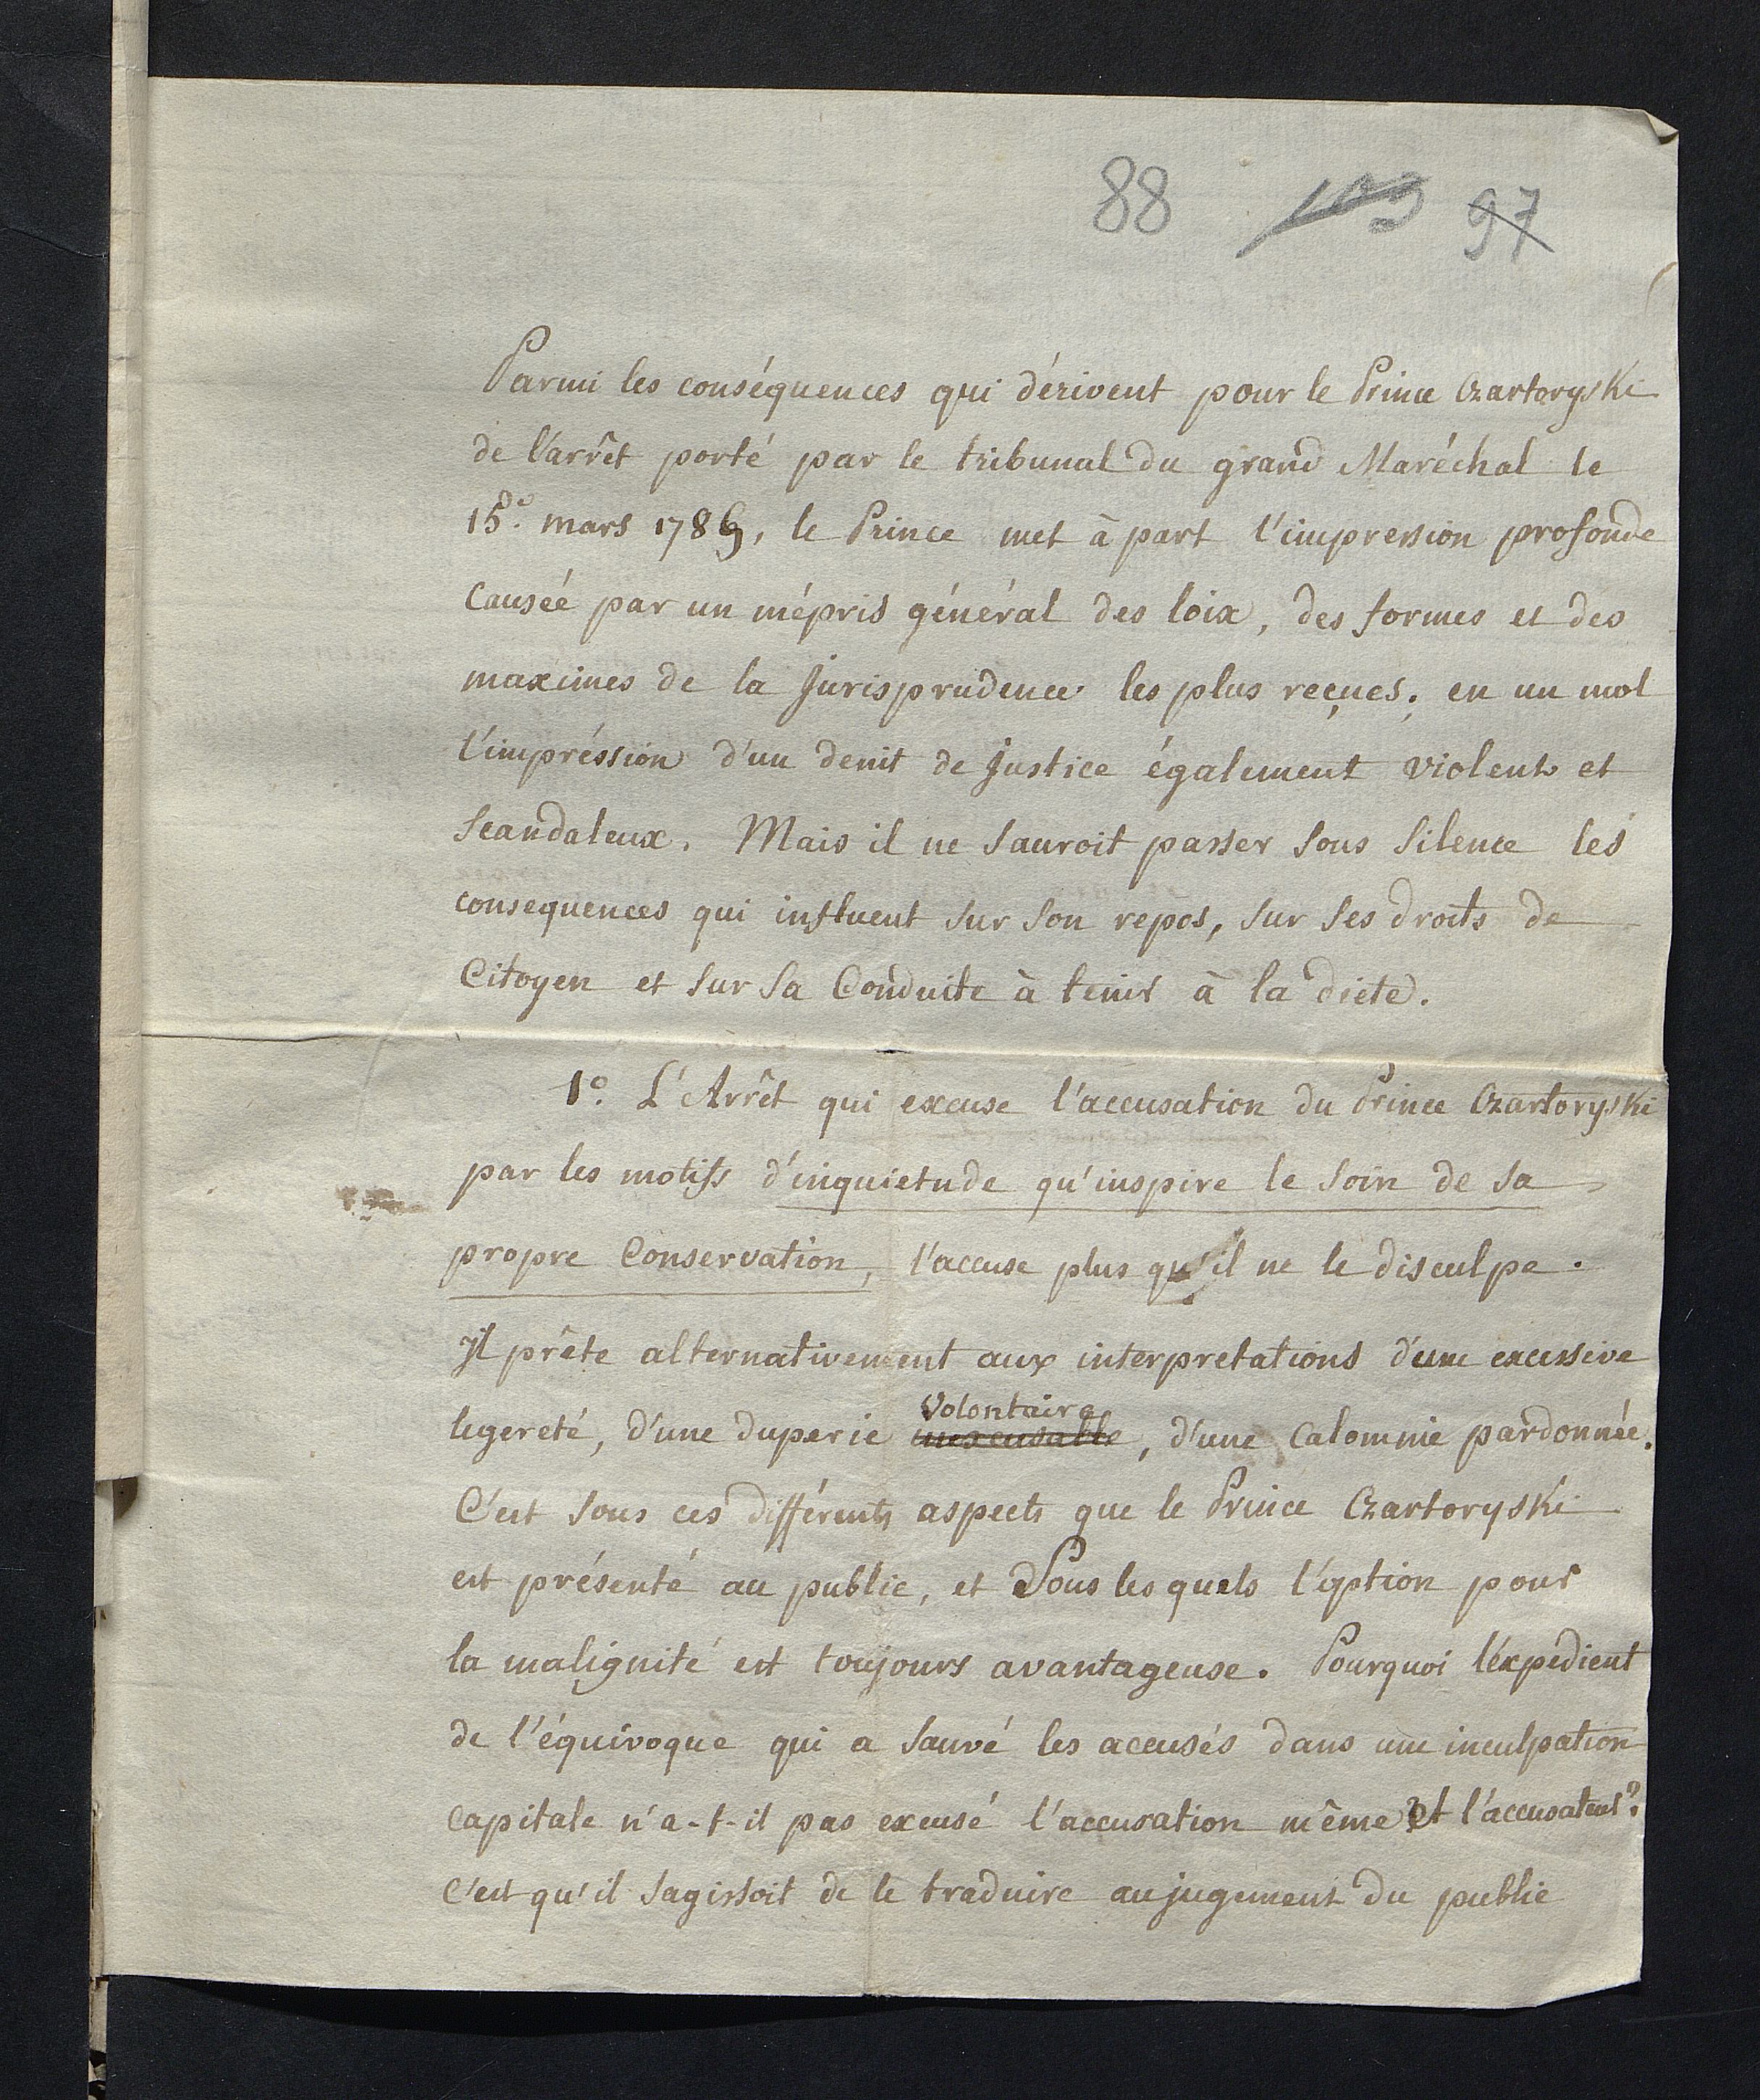 88 109 97
Parmi les conséquences qui dérivent pour le Prince Czartoryski
de l'arrêt porté par le tribunal du grand Maréchal le
15.e mars 1785, le Prince met à part l'impression profonde
causéé par un mépris général des loix, des formes et des
maximes de la Jurisprudence les plus reçues; en un mot
l'impréssion d'un denit de Justice également violent et
scandaleux. Mais il ne sauroit passer sous silence les
consequences qui influent sur son repos, sur ses droits de
Citoyen et sur sa Conduite à tenir à la diete.
1.o L'Arrêt qui excuse l'accusation du Prince Czartoryski
par les motifs d'inquietude qu'inspire le soin de sa
propre Conservation, l'accuse plus qu'il ne le disculpe.
Il prête alternativement aux interpretations d'une excessive
legereté, d'une duperie inexcusable volontaire, d'une calomnie pardonnée.
C'est sous ces différents aspects que le Prince Czartoryski
est présenté au public, et sous les quels l'option pour
la malignité est toujours avantageuse. Pourquoi l'éxpédient
de l'équivoque qui a sauvé les accusés dans une inculpation
capitale n'a-t-il pas excusé l'accusation même et l'accusateur?
c'est qu'il sagissoit de le traduire au jugement du public